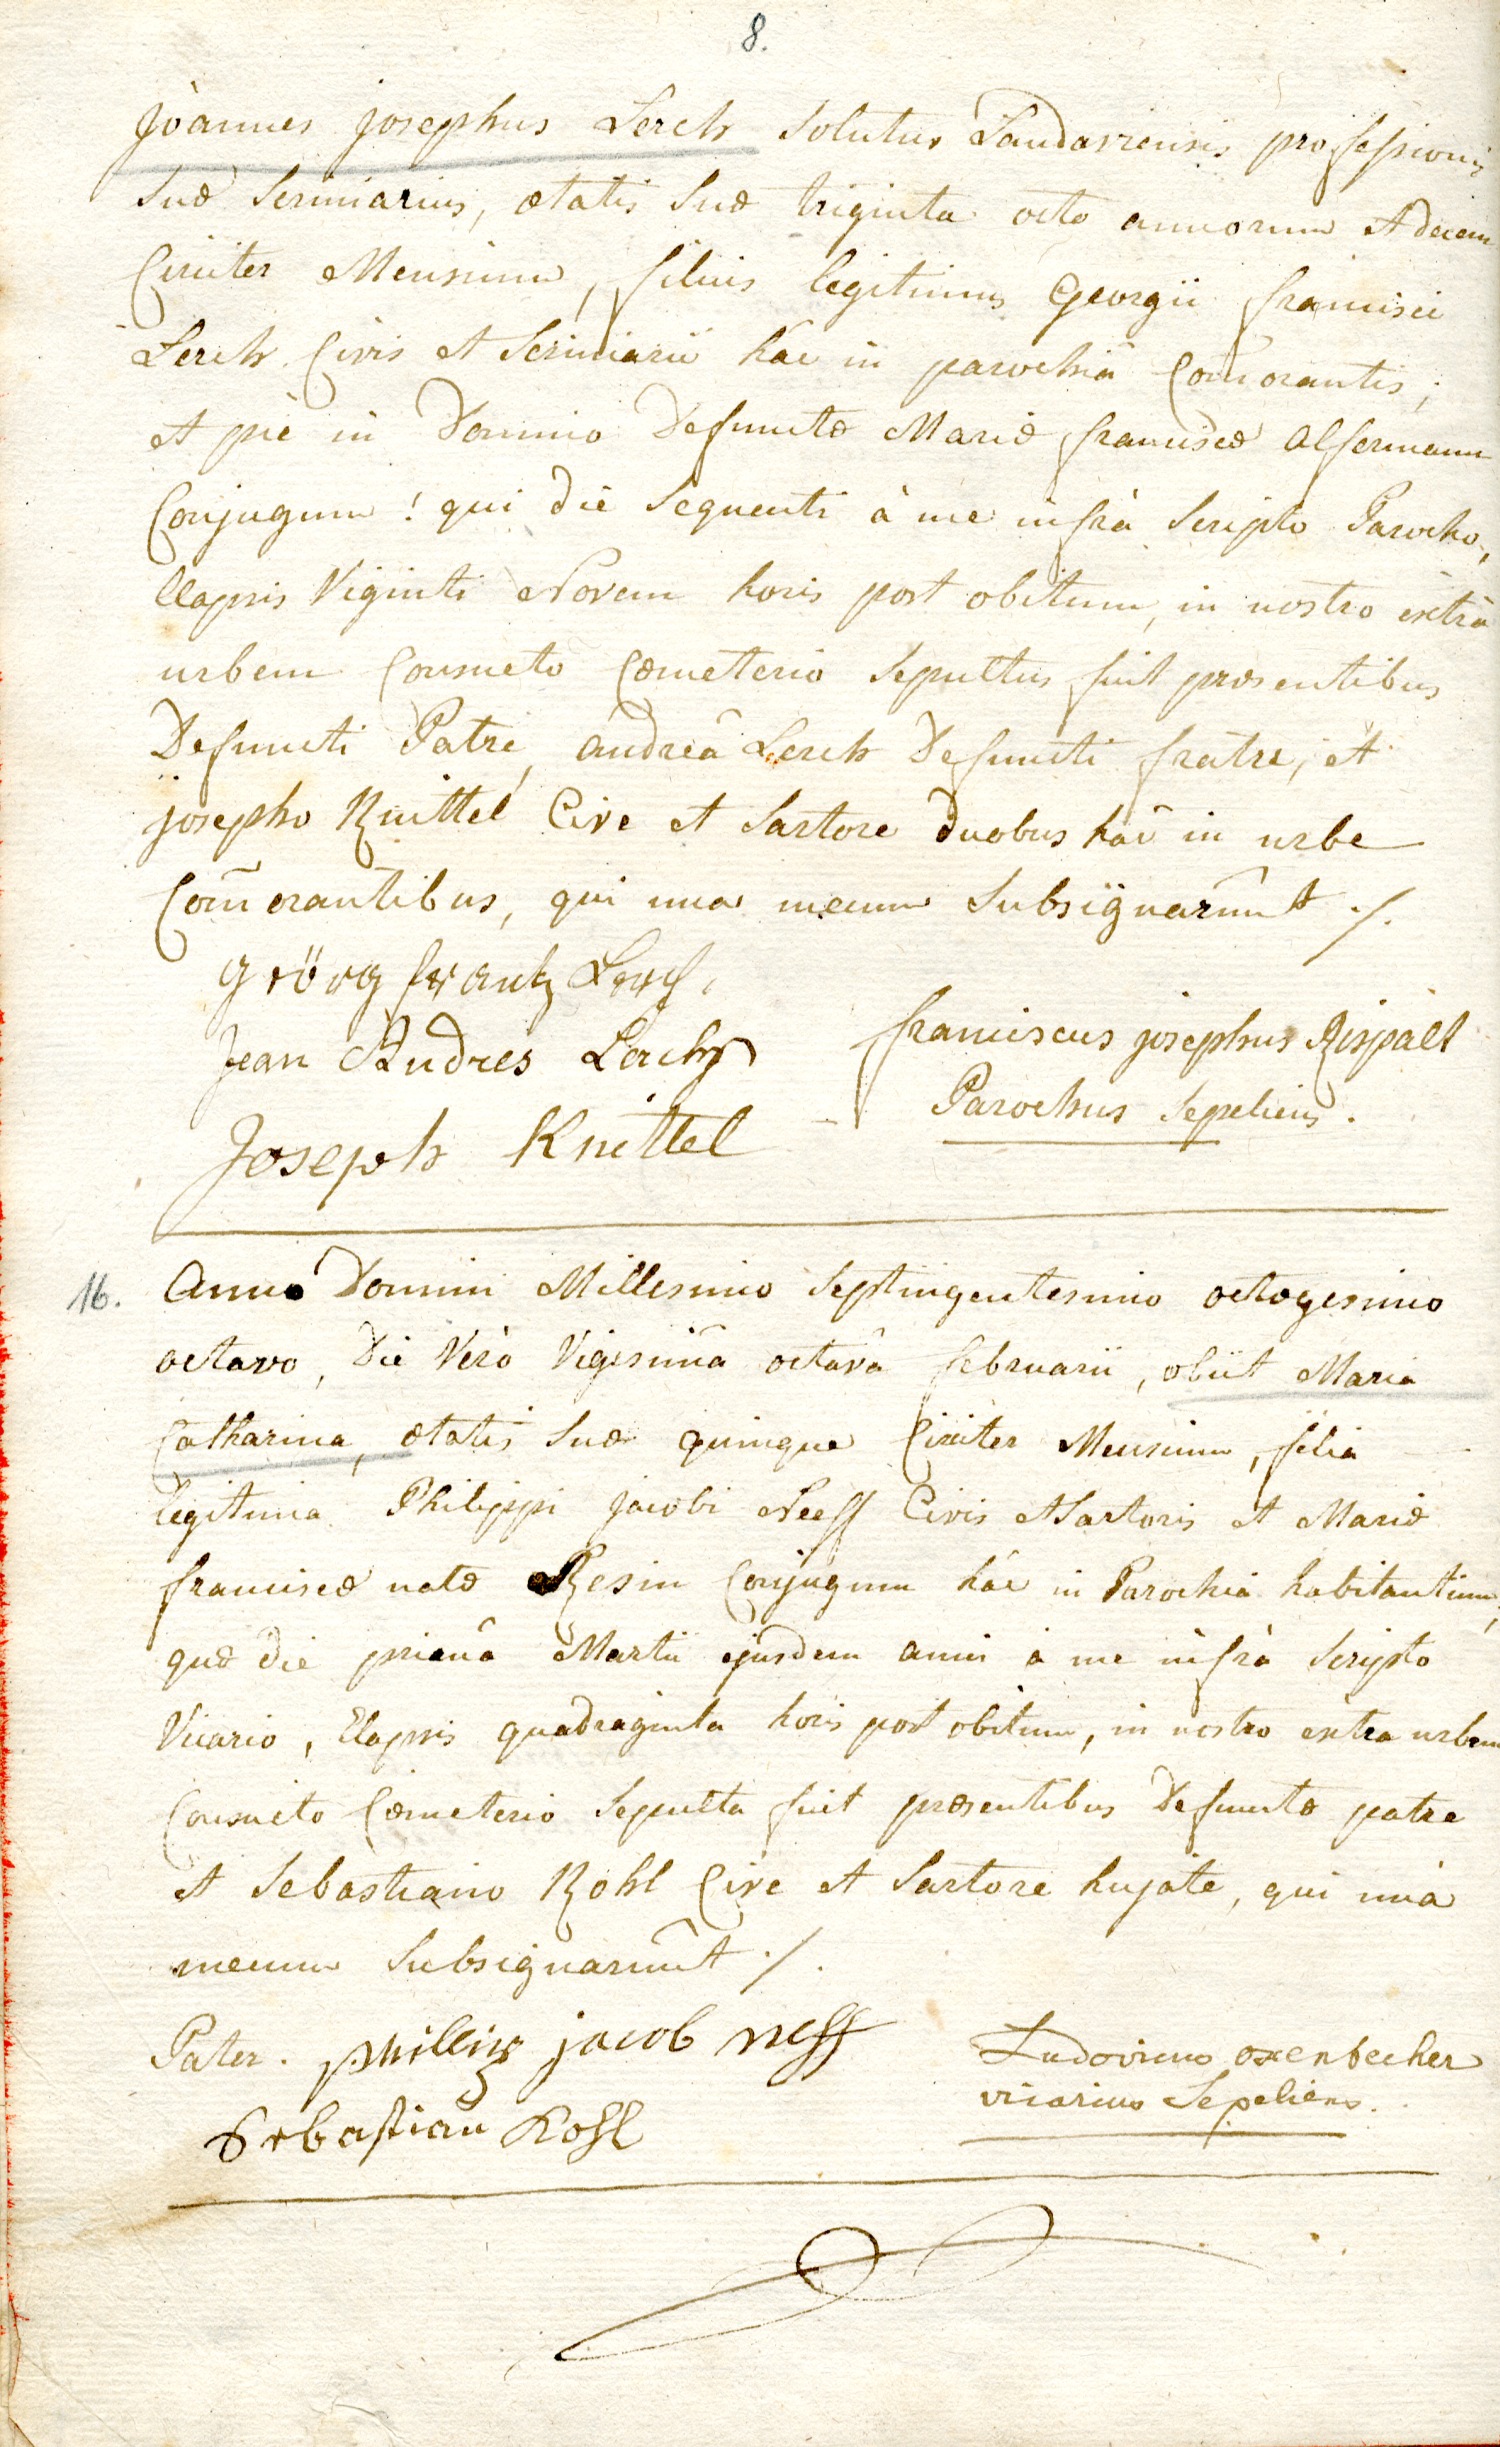 8.
Joannes josephus Lerch Solutus Landaviensis professionis
Suæ Scriniarius, ætatis Suæ triginta octo annorum et decem
Circiter Mensium, filius legitimus Georgii francisci
Lerch Civis et Scriniarii hâc in parochiâ Com̃orantis,
et piè in Domino Defunctæ Mariæ franciscæ Alsermann
Conjugum ! qui die Sequenti à me infrà Scripto Parocho,
Elapsis Viginti Novem horis post obitum, in nostro extrà
urbem Consueto Cœmeterio Sepultus fuit præsentibus
Defuncti Patre, andreâ Lerch Defuncti fratre, et
josepho Knittel Cive et Sartore duobus hâc in urbe
Com̃orantibus, qui unà mecum Subsignarunt ./.
Geörg frantz Lerch.
Jean Andres Lerch
franciscus josephus Rispalt
Parochus Sepeliens.
Joseph Knittel
16. Anno Domini Millesimo Septingentesimo octogesimo
octavo, Die Verò Vigesimâ octavâ februarii, obiit Maria
Catharina, ætatis Suæ quinque Circiter Mensium, filia
legitima Philippi jacobi Neeff Civis et Sartoris et Mariæ
franciscæ natæ Resin Conjugum hâc in Parochiâ habitantium,
quæ die primâ Martii ejusdem anni à me infrà Scripto
Vicario, Elapsis quadraginta horis post obitum, in nostro extra urbem
Consueto Cœmeterio Sepulta fuit præsentibus Defunctæ patre
et Sebastiano Kohl Cive et Sartore hujate, qui unà
mecum Subsignarunt ./.
Pater. phillip jacob neff
Ludovicus oxenbecher
vicarius Sepeliens.
Sebastian Kohl